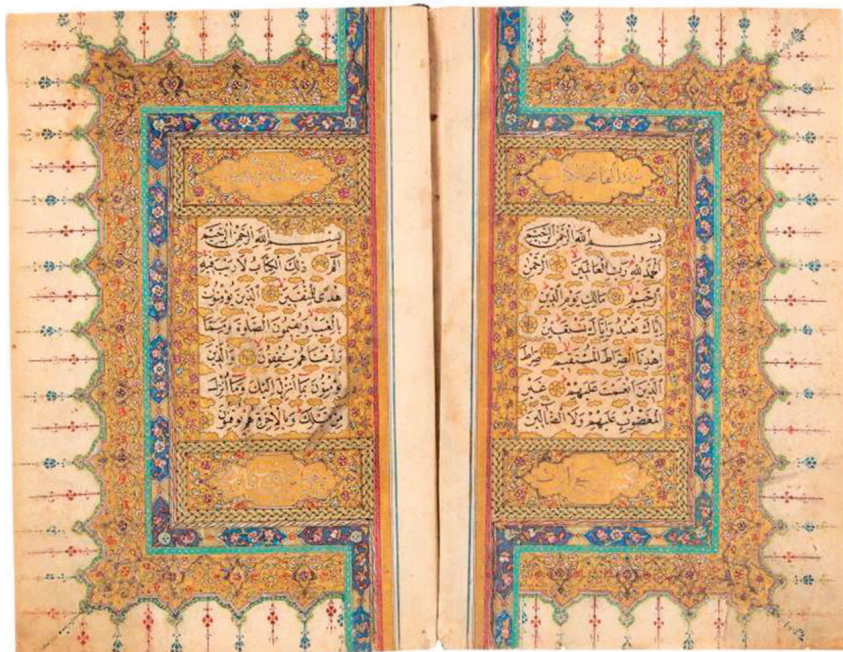 سورة الفاتحة الكتاب
بسم الله الرحمن الرحيم
الحمد لله رب العالمين الرحمن
الرحيم مالك يوم الدين
اياك نعبد واياك نستعين
اهدنا الصراط المستقيم صراط
الذين انعمت عليهم غير
المغضوب عليهم ولا الضالين
بسم الله الرحمن الرحيم
الم ذلك الكتاب لا ريب فيه
هدى للمتقين الذين يؤمنون
بالغيب ويقيمون الصلوة ومما
رزقناهم ينفقون والذين
يؤمنون بما انزل اليك وما انزل
من قبلك وبالاخرة هم يوقنون